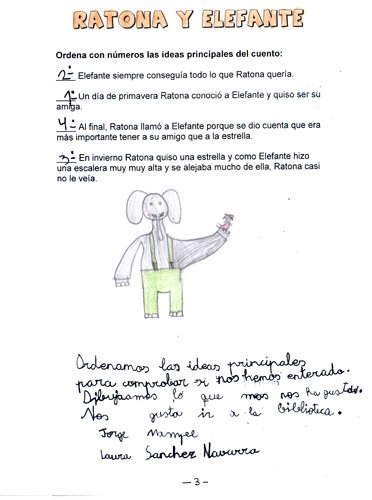 RATONA Y ELEFANTE
Ordena con números las ideas principales del cuento:
2- Elefante siempre conseguía todo lo que Ratona quería.
1- Un día de primavera Ratona conoció a Elefante y quiso ser su
amiga.
4- Al final, Ratona llamó a Elefante porque se dio cuenta que era
más importante tener a su amigo que a la estrella.
3- En invierno Ratona quiso una estrella y como Elefante hizo
una escalera muy muy alta y se alejaba mucho de ella, Ratona casi
no le veía.
Ordenamos las ideas principales
para comprobar si nos hemos enterado.
Dibujaamos lo que mas nos ha gustado.
Nos gusta ir a la biblioteca.
Jorge
Laura Sanchez Navarra
— 3 -